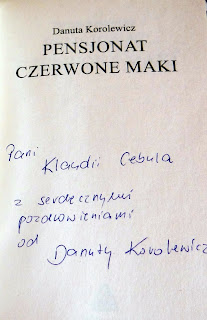 Danuta Korolewicz
PENSJONAT
CZERWONE MAKI
Pani
Klaudii Cebula
z serdecznymi
pozdrowieniami
od
Danuty Korolewicz